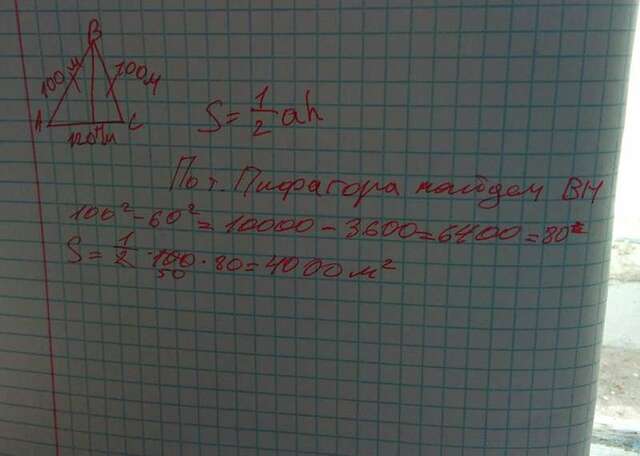 B
100м 100м
A H C
120м
S = 1/2 ah
По т. Пифагора найдем BH
100² - 60² = 10000 - 3600 = 6400 = 80²
S = 1/2 · 100 · 80 = 4000 м²
50